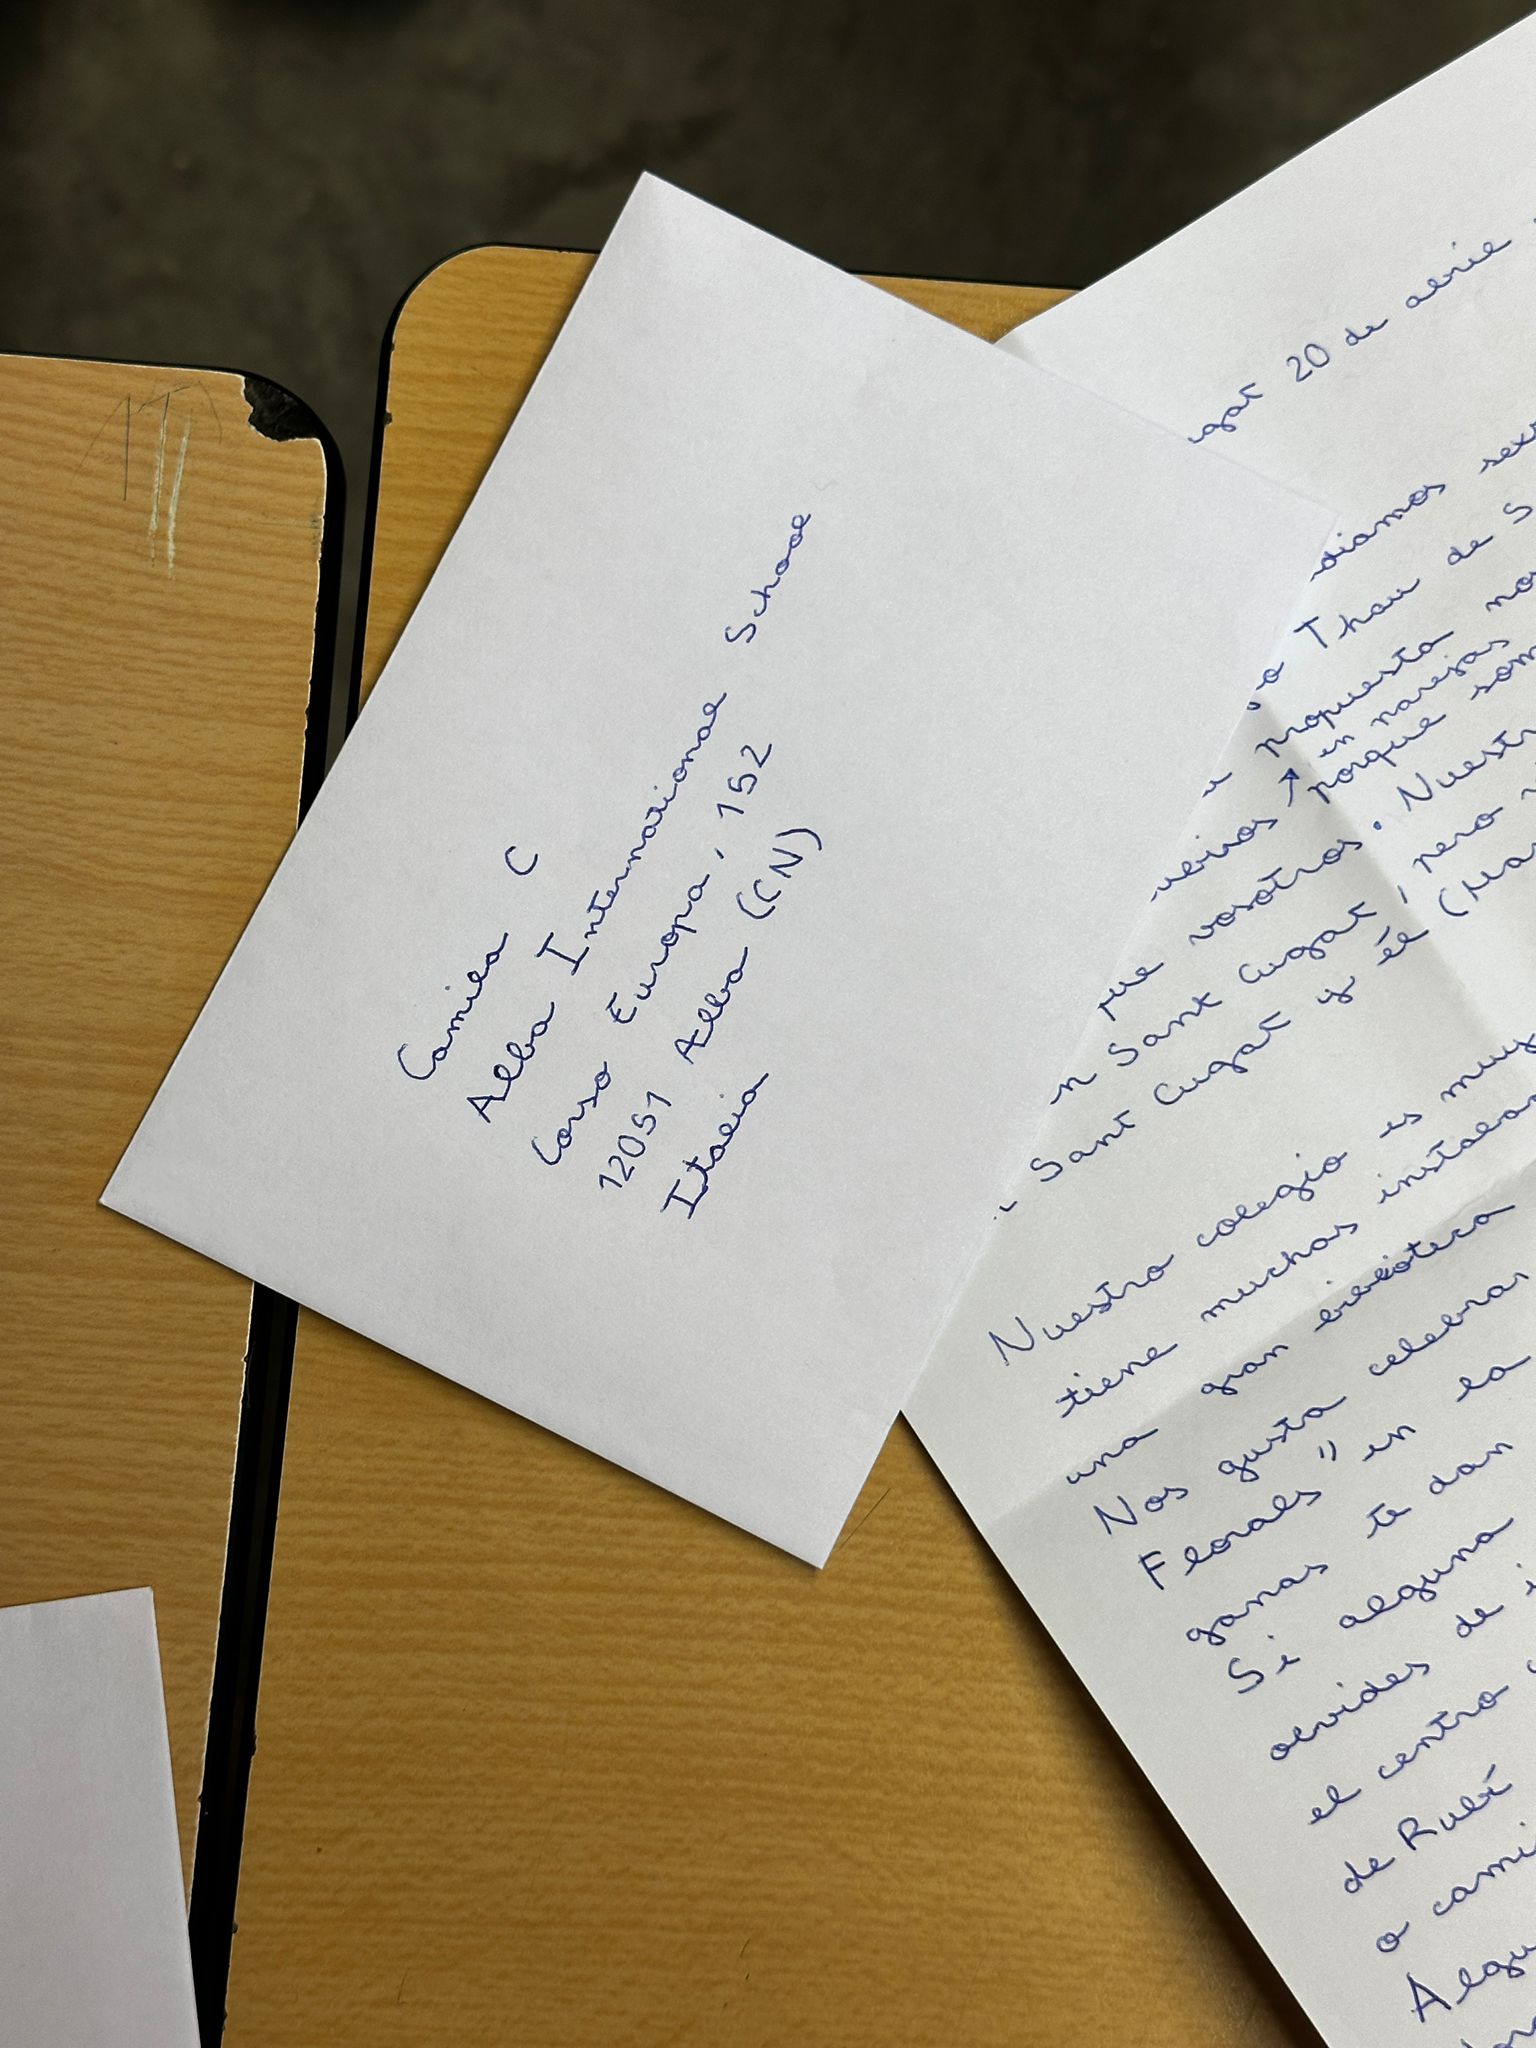 Camila C
Alba International School
Corso Europa, 152
12051 Alba (CN)
Italia
20 de abril
Thau de S
propuesta nos
en parejas
porque som
que vosotros. Nuestr
Sant Cugat, pero
Sant Cugat y él (Mar
Nuestro colegio es muy
tiene muchas instalac
una gran biblioteca
Nos gusta celebrar
Florals" en la
ganas te dan
Si alguna
olvides de i
el centro
de Rubí
o cami
Algu